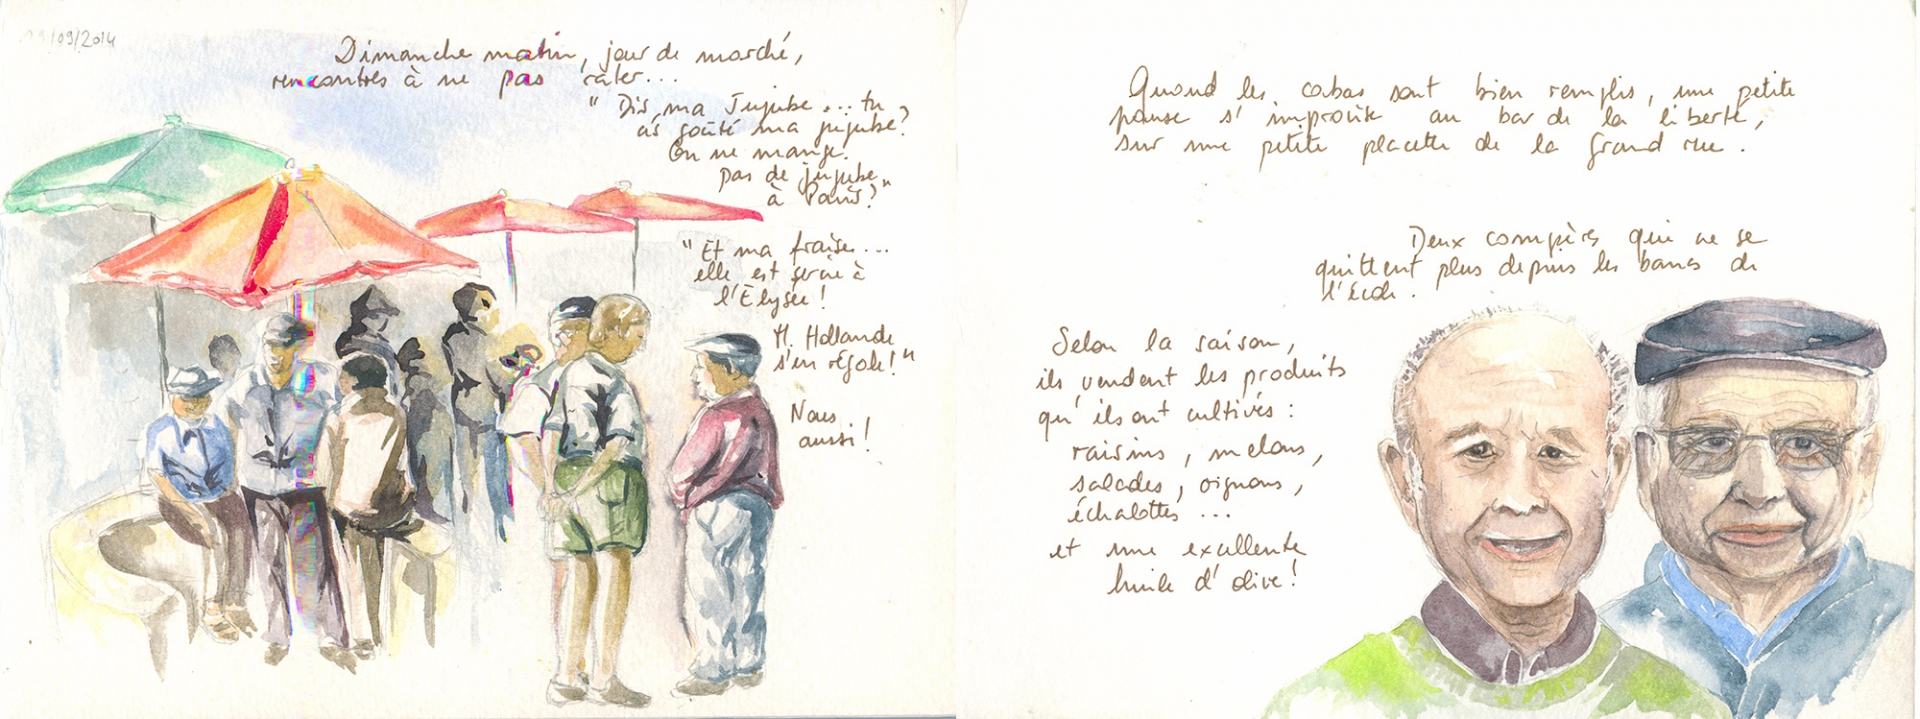 /09/2014
Dimanche matin, jour de marché,
rencontres à ne pas rater...
" Dis, ma Jujube... tu
as goûté ma jujube?
On ne mange
pas de jujube
à Paris?"
"Et ma fraise...
elle est servie à
l'Elysée!
M. Hollande
s'en régale!"
Nous
aussi!
Quand les cabas sont bien remplis, une petite
pause s'improvise au bar de la liberté,
sur une petite placette de la Grand rue.
Deux compères qui ne se
quittent plus depuis les bancs de
l'école.
Selon la saison,
ils vendent les produits
qu'ils ont cultivés:
raisins, melons,
salades, oignons,
échalottes ...
et une excellente
huile d'olive!